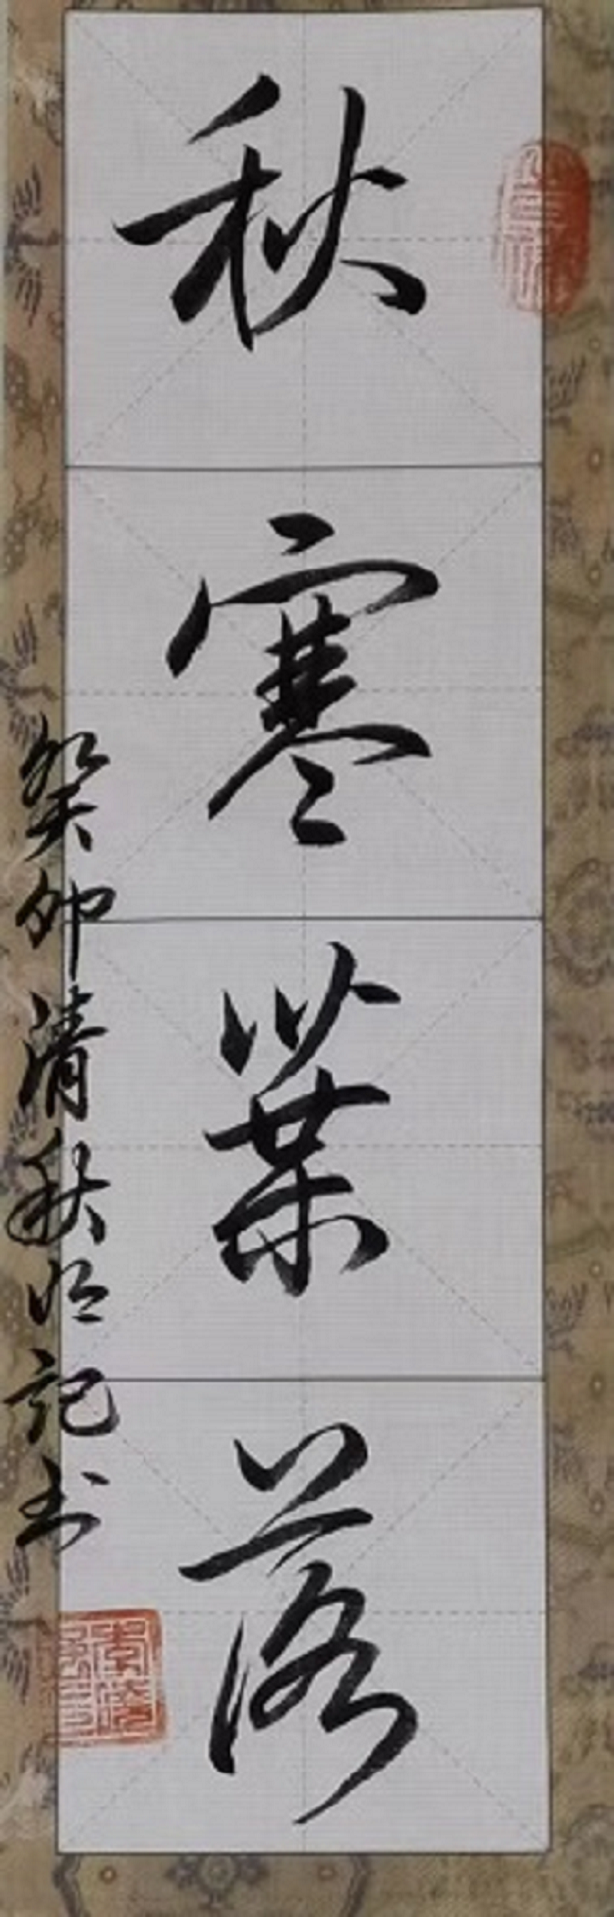 秋寒葉落
癸卯清秋 記书